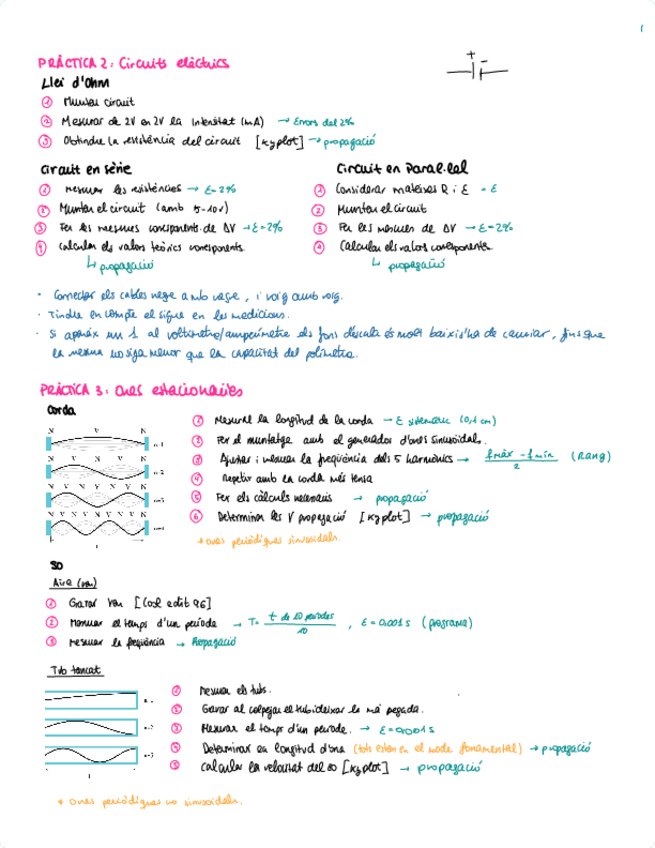 1
PRÀCTICA 2: Circuits elèctrics
+ -
Llei d'Ohm
① Muntar circuit
② Mesurar de 2V en 2V la Intensitat (mA) → Errors del 2%
③ Obtindre la resistència del circuit [kyplot] → propagació
Circuit en sèrie
① mesurar les resistències → ε=2%
② Muntar el circuit (amb 5-10V)
③ Fer les mesures corresponents de ΔV → ε=2%
④ calcular els valors teòrics corresponents.
↳ propagació
Circuit en Paral·lel
① Considerar mateixes R i ε
② Muntar el circuit
③ Fer les mesures de ΔV → ε=2%
④ Calcular els valors corresponents.
↳ propagació
· Connectar els cables negre amb negre, i roig amb roig.
· Tindre en compte el signe en les medicions.
· Si apareix un 1 al voltímetre/amperímetre els fons d'escala és molt baix i s'ha de canviar, fins que
la mesura no siga menor que la capacitat del polímetre.
PRÀCTICA 3: Ones estacionàries
Corda
N V N
n=1
n=2
N V N V N V N
n=3
N V N V N V N V N
n=4
① Mesurar la longitud de la corda → ε sistemàtic (0,1 cm)
② Fer el muntatge amb el generador d'ones sinusoidals.
③ Ajustar i mesurar la freqüència dels 5 harmònics → fmàx - fmín / 2 (Rang)
④ Repetir amb la corda més tensa
⑤ Fer els càlculs necessaris → propagació
⑥ Determinar les V propagació [kyplot] → propagació
* Ones periòdiques sinusoidals.
SO
Aire (veu)
① Gravar veu [Cool edit 96]
② Mesurar el temps d'un període → T= t de 10 períodes / 10 , ε=0,001 s (programa)
③ mesurar la freqüència → Propagació
Tub tancat
n=2
n=3
① Mesurar els tubs.
② Gravar al colpejar el tub i deixar la mà pegada.
③ Mesurar el temps d'un període. → ε=0,001 s
④ Determinar la longitud d'ona (tots estan en el mode fonamental) → propagació
⑤ Calcular la velocitat del so [kyplot] → propagació
* Ones periòdiques no sinusoidals.